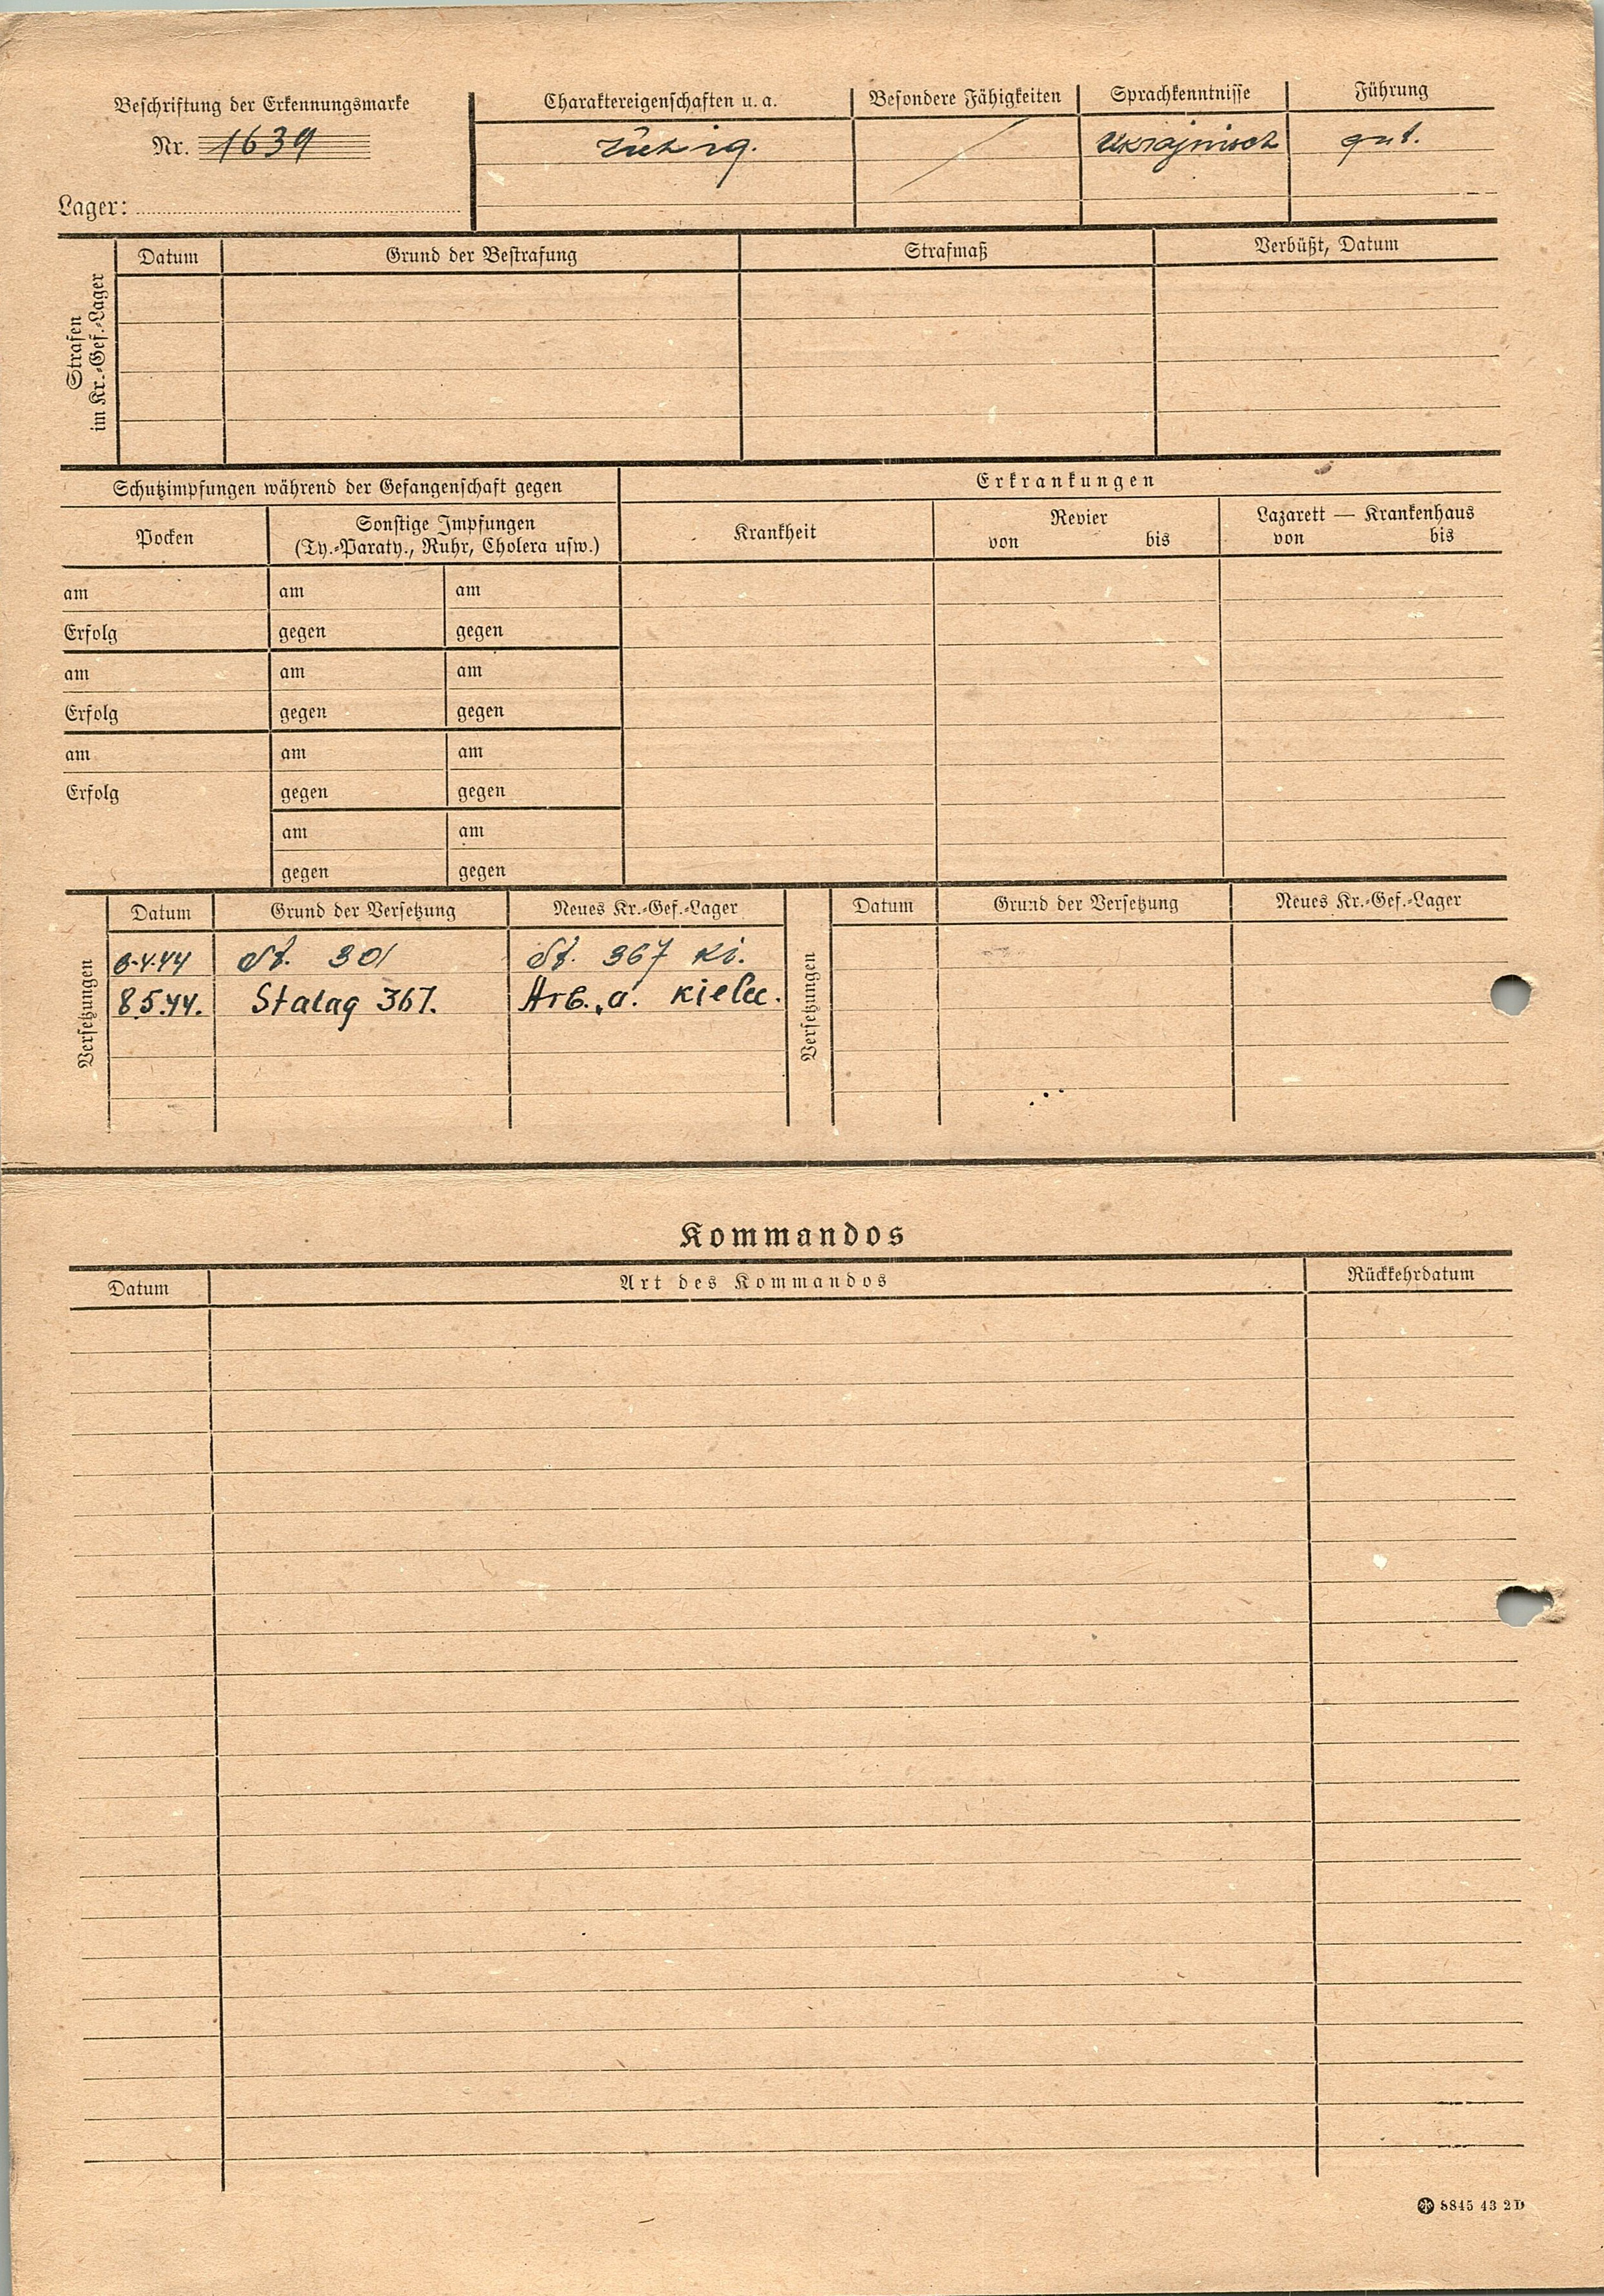 Beschriftung der Erkennungsmarke
Nr. 1639
Lager:
Charaktereigenschaften u. a.
Besondere Fähigkeiten
Sprachkenntnisse
Führung
Ukrajnisch
gut.
Strafen
im Kr.-Gef.-Lager
Datum
Grund der Bestrafung
Strafmaß
Verbüßt, Datum
Schutzimpfungen während der Gefangenschaft gegen
Erkrankungen
Pocken
Sonstige Impfungen
(Ty.-Paraty., Ruhr, Cholera usw.)
Krankheit
Revier
von bis
Lazarett — Krankenhaus
von bis
am am am
Erfolg gegen gegen
am am am
Erfolg gegen gegen
am am am
Erfolg gegen gegen
am am
gegen gegen
Versetzungen
Datum Grund der Versetzung Neues Kr.-Gef.-Lager
St. 301 St. 367 Ki.
8.5.44. Stalag 367. Arb. a. Kielce.
Versetzungen
Datum Grund der Versetzung Neues Kr.-Gef.-Lager
Kommandos
Datum Art des Kommandos Rückkehrdatum
8845 43 2D